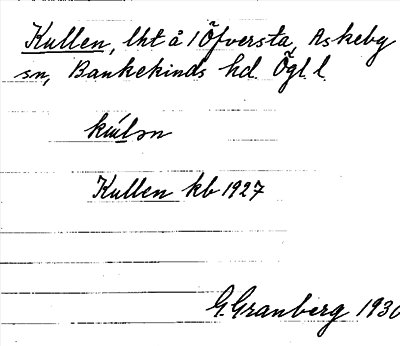 Kullen, lht å 1 Öfversta, Askeby
sn, Bankekinds hd. Ögl. l.
kúlən
Kullen kb 1927
G. Granberg 1930